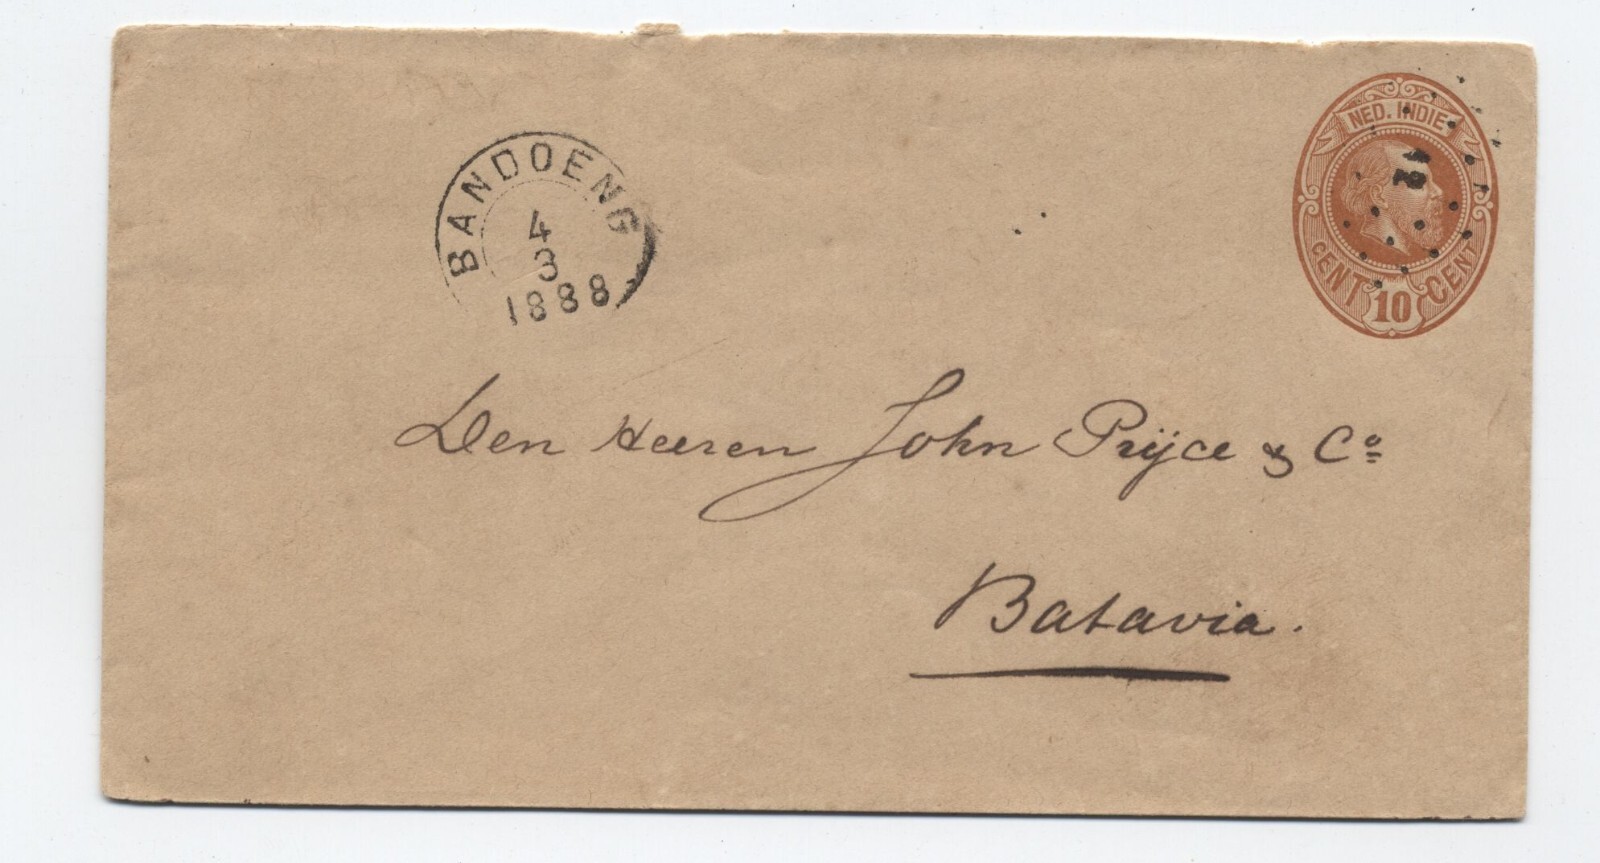 BANDOENG
4
3
1888
NED. INDIE
42
CENT 10 CENT
Den Heeren John Prijce & Co
Batavia.